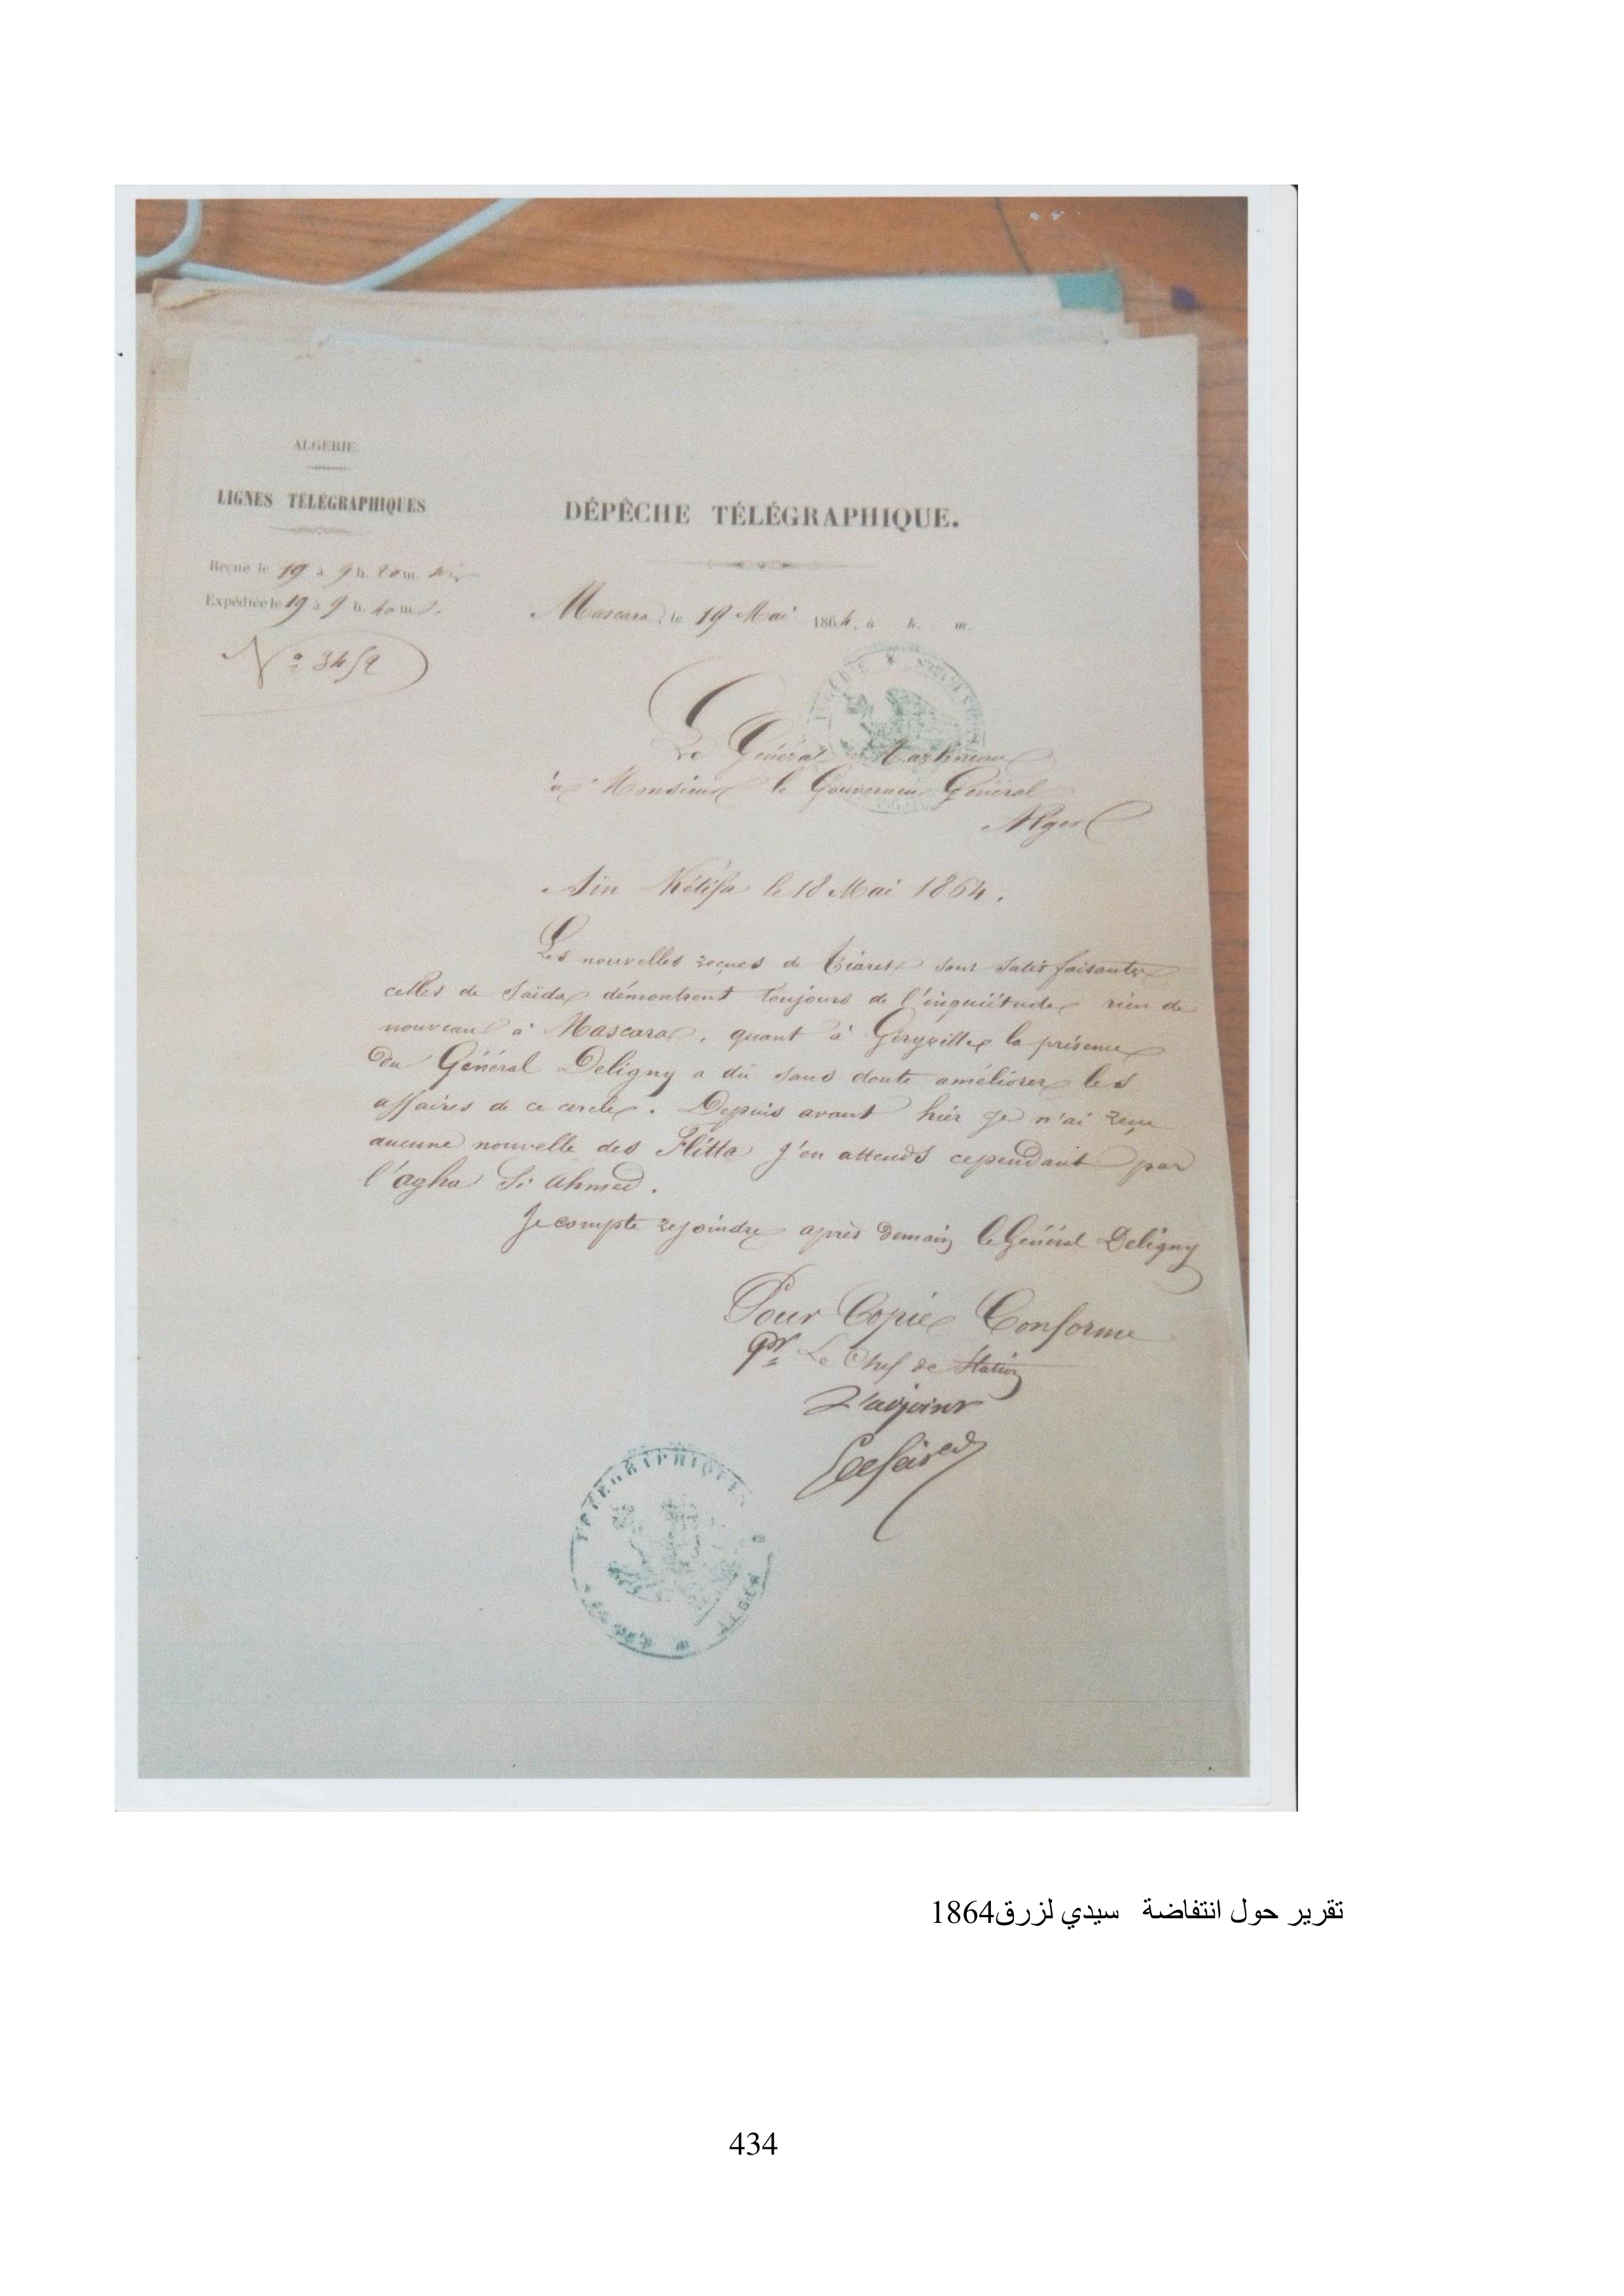 ALGERIE
LIGNES TÉLÉGRAPHIQUES
DÉPÊCHE TÉLÉGRAPHIQUE.
Reçue le 19 à 9 h. 20 m. soir
Expédiée le 19 à 9 h. 40 m. s.
Mascara, le 19 Mai 1864, à h. m.
N° 3452
Le Général Martineau
à Monsieur le Gouverneur Général
Alger
Aïn Kétifa le 18 Mai 1864.
Les nouvelles reçues de Tiaret sont satisfaisantes
celles de Saïda démontrent toujours de l'inquiétude rien de
nouveau à Mascara, quant à Géryville la présence
du Général Deligny a dû sans doute améliorer les
affaires de ce cercle. Depuis avant hier je n'ai reçu
aucune nouvelle des Flitta j'en attends cependant par
l'agha Si Ahmed.
Je compte rejoindre après demain le Général Deligny
Pour Copie Conforme
Pr Le Chef de Station
L'adjoint
TÉLÉGRAPHIQUES
ALGER
تقرير حول انتفاضة سيدي لزرق1864
434